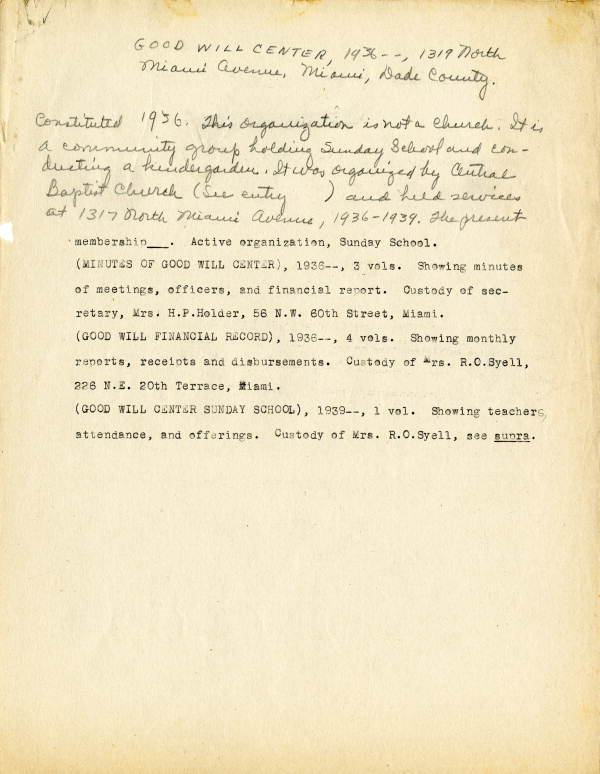 GOOD WILL CENTER, 1936--, 1319 North
Miami Avenue, Miami, Dade County.
Constituted 1936. This organization is not a church. It is
a community group holding Sunday School and con-
ducting a kindergarden. It was organized by Central
Baptist Church (See entry ) and held services
at 1317 North Miami Avenue, 1936-1939. The present
membership___. Active organization, Sunday School.
(MINUTES OF GOOD WILL CENTER), 1936--, 3 vols. Showing minutes
of meetings, officers, and financial report. Custody of sec-
retary, Mrs. H.P.Holder, 56 N.W. 60th Street, Miami.
(GOOD WILL FINANCIAL RECORD), 1936--, 4 vols. Showing monthly
reports, receipts and disbursements. Custody of Mrs. R.O.Syell,
226 N.E. 20th Terrace, Miami.
(GOOD WILL CENTER SUNDAY SCHOOL), 1939--, 1 vol. Showing teachers,
attendance, and offerings. Custody of Mrs. R.O.Syell, see supra.